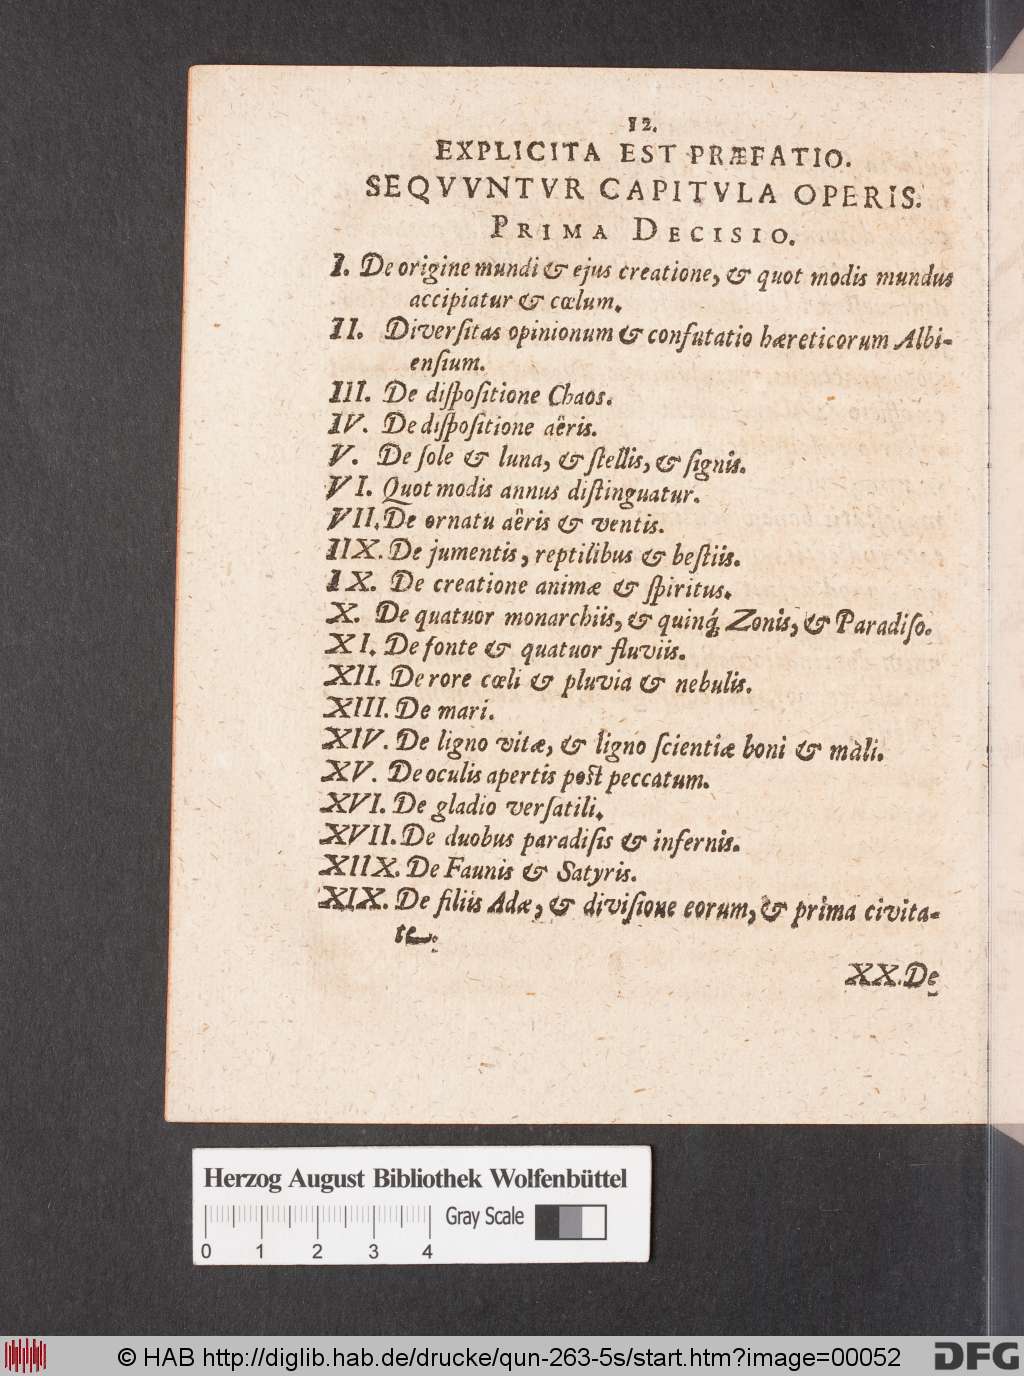 12.
EXPLICITA EST PRÆFATIO.
SEQVVNTVR CAPITVLA OPERIS.
PRIMA DECISIO.
I. De origine mundi & ejus creatione, & quot modis mundus
accipiatur & cœlum.
II. Diverſitas opinionum & confutatio hæreticorum Albi-
enſium.
III. De diſpoſitione Chaos.
IV. De diſpoſitione aëris.
V. De ſole & luna, & ſtellis, & ſignis.
VI. Quot modis annus diſtinguatur.
VII. De ornatu aëris & ventis.
IIX. De jumentis, reptilibus & beſtiis.
IX. De creatione animæ & ſpiritus.
X. De quatuor monarchiis, & quinq́; Zonis, & Paradiſo.
XI. De fonte & quatuor fluviis.
XII. De rore cœli & pluvia & nebulis.
XIII. De mari.
XIV. De ligno vitæ, & ligno ſcientiæ boni & mali.
XV. De oculis apertis poſt peccatum.
XVI. De gladio verſatili.
XVII. De duobus paradiſis & infernis.
XIIX. De Faunis & Satyris.
XIX. De filiis Adæ, & diviſione eorum, & prima civita-
te.
XX. De
Herzog August Bibliothek Wolfenbüttel
Gray Scale
0 1 2 3 4
© HAB http://diglib.hab.de/drucke/qun-263-5s/start.htm?image=00052
DFG